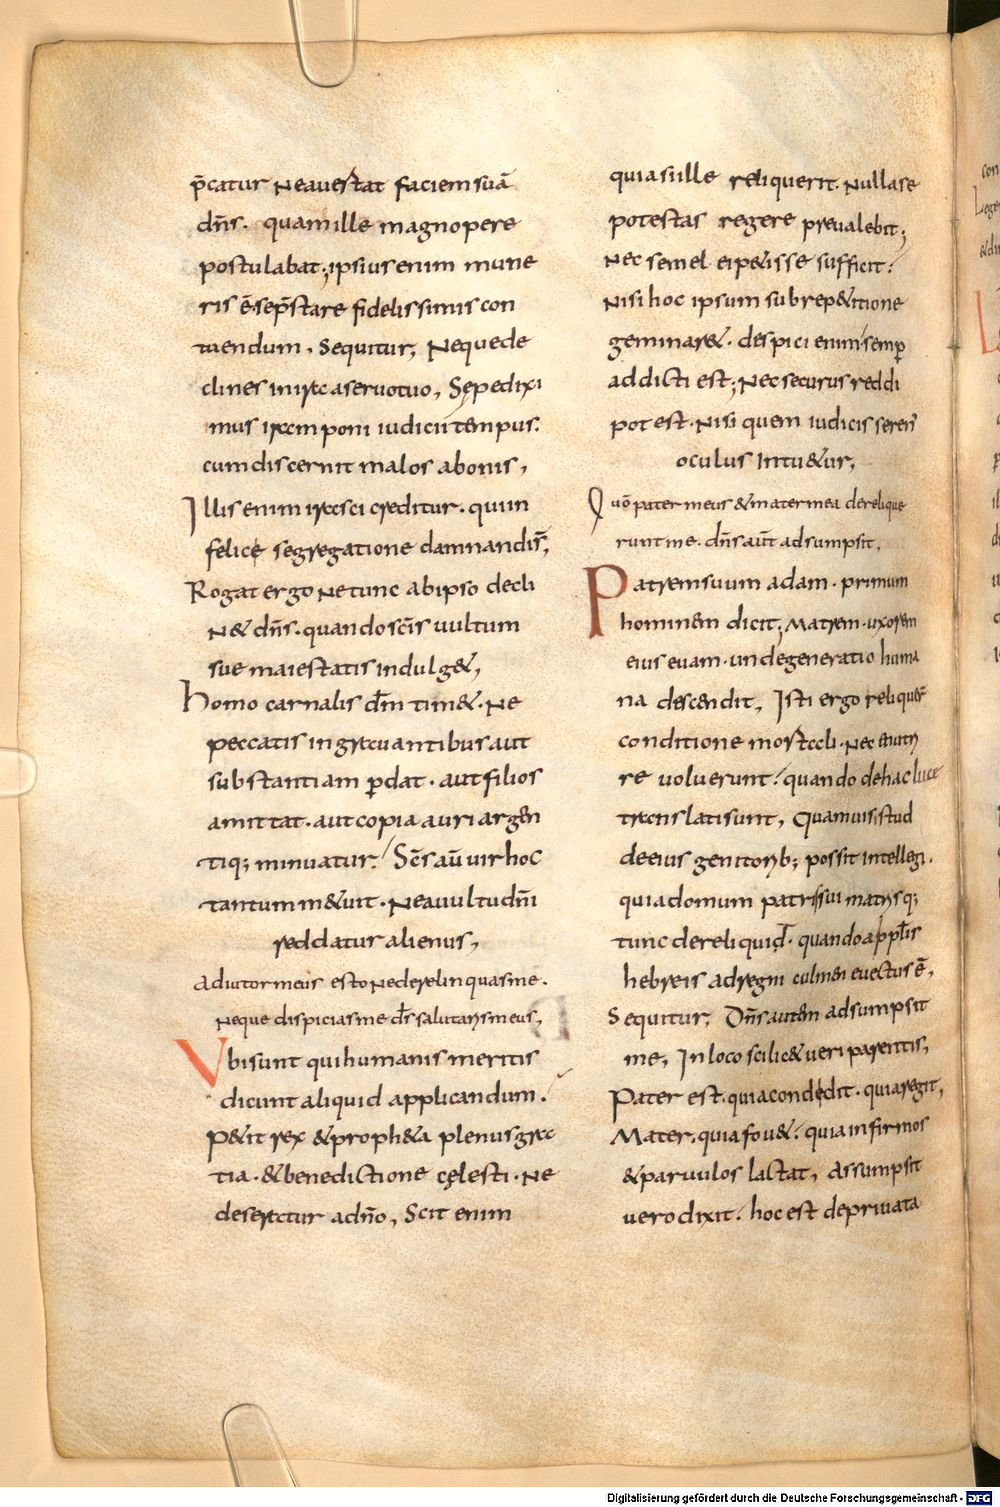 p̄catur Ne avertat faciem suā
dn̄s. quam ille magnopere
postulabat; ipsius enim mune
ris ē. se p̄stare fidelissimis con
tuendum, Sequitur; Neque de
clines in ira a servo tuo, Sepe dixi
mus iram poni iudicii tempus.
cum discernit malos a bonis,
Illis enim irasci creditur. qui in
felice segregatione damnandi s̄;
Rogat ergo Ne tunc ab ipso decli
N& dn̄s. quando sc̄is vultum
sue maiestatis indulg&,
homo carnalis dm̄ tim&. Ne
peccatis ingravantibus aut
substantiam p̱dat. aut filios
amittat. aut copia auri argen
tiq; minuatur. Sc̄s aū vir hoc
tantum m&uit. Ne a vultu dn̄i
reddatur alienus,
Adiutor meus esto Ne derelinquas me.
Neque dispicias me ds̄ salutaris meus,
Vbi sunt qui humanis meritis
dicunt aliquid applicandum.
P&it rex & proph&a plenus gra
tia. & benedictione cęlesti. Ne
deseratur a dn̄o, Scit enim
quia si ille reliquerit. Nulla se
potestas regere prevalebit;
Nec semel ei p&isse sufficit.
Nisi hoc ipsum sub rep&itione
geminar&. despici enim semp̱
addicti est; Nec securus reddi
potest. Nisi quem iudicis seren̄
oculus intu&ur,
Quō pater meus & mater mea derelique
runt me. dn̄s aūt adsumpsit,
Patrem suum adam. primum
hominem dicit; Matrem. uxorem
eius evam. unde generatio huma
na descendit, Isti ergo reliquer̄
conditione mortali. Nec enutri
re voluerunt. quando de hac luce
translati sunt, Quamvis istud
de eius genitorib; possit intellegi.
quia domum patris sui matrisq;
tunc dereliquid. quando a pp̄lis
hebreis ad regni culmen evectus ē,
Sequitur, Dn̄s autem adsumpsit
me, In loco scilic& veri parentis,
Pater est. quia condedit. quia regit,
Mater. quia fov&. quia infirmos
& parvulos lactat, Assumpsit
vero dixit. hoc est de privata
Digitalisierung gefördert durch die Deutsche Forschungsgemeinschaft - DFG